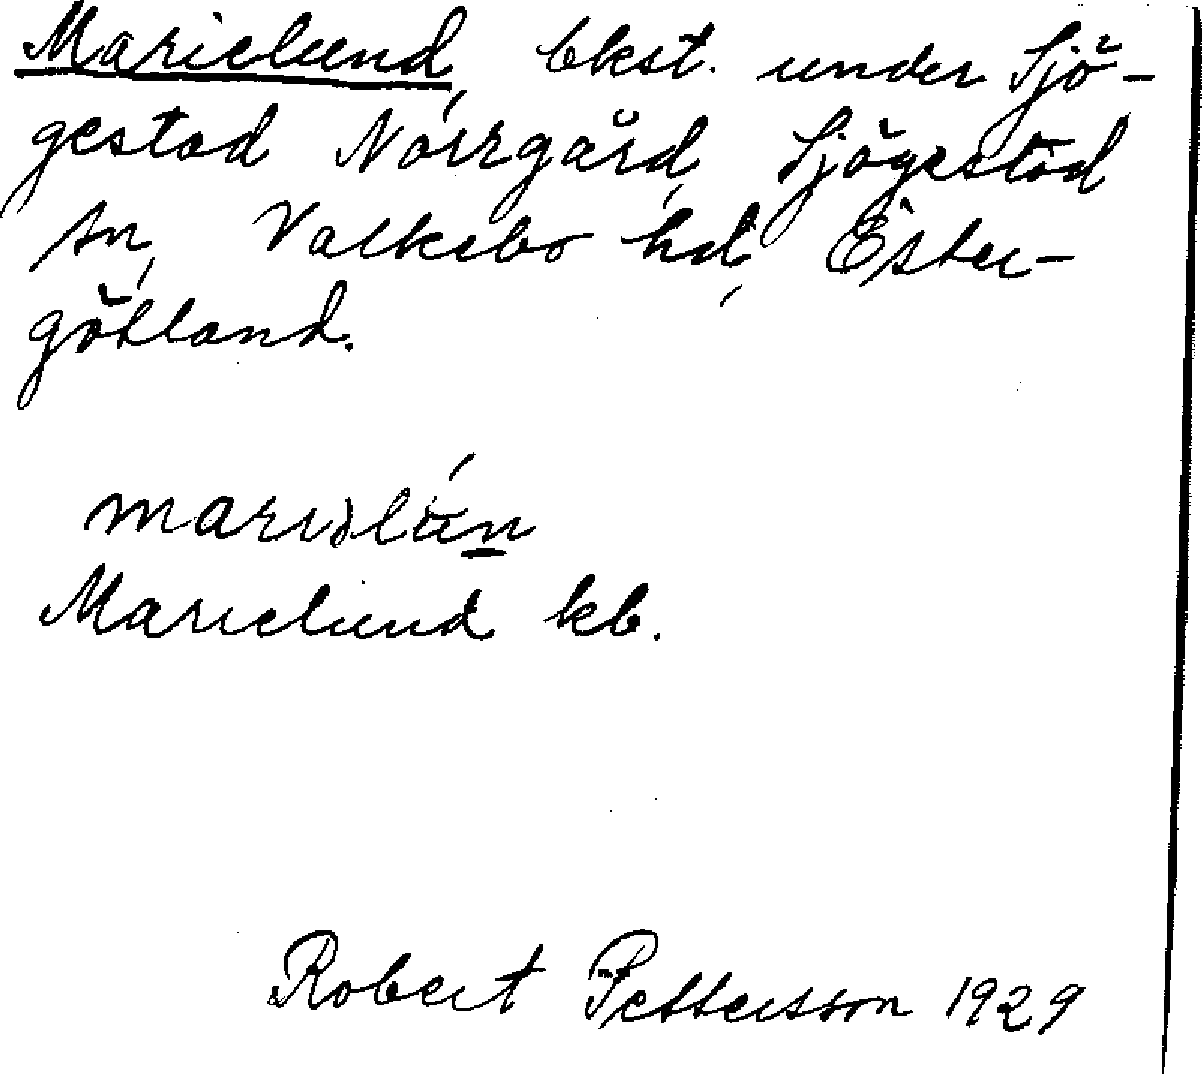 Marielund, bkst. under Sjö-
gestad Norrgård, Sjögestad
sn, Valkebo hd, Öster-
götland.
Marielund kb.
Robert Pettersson 1929